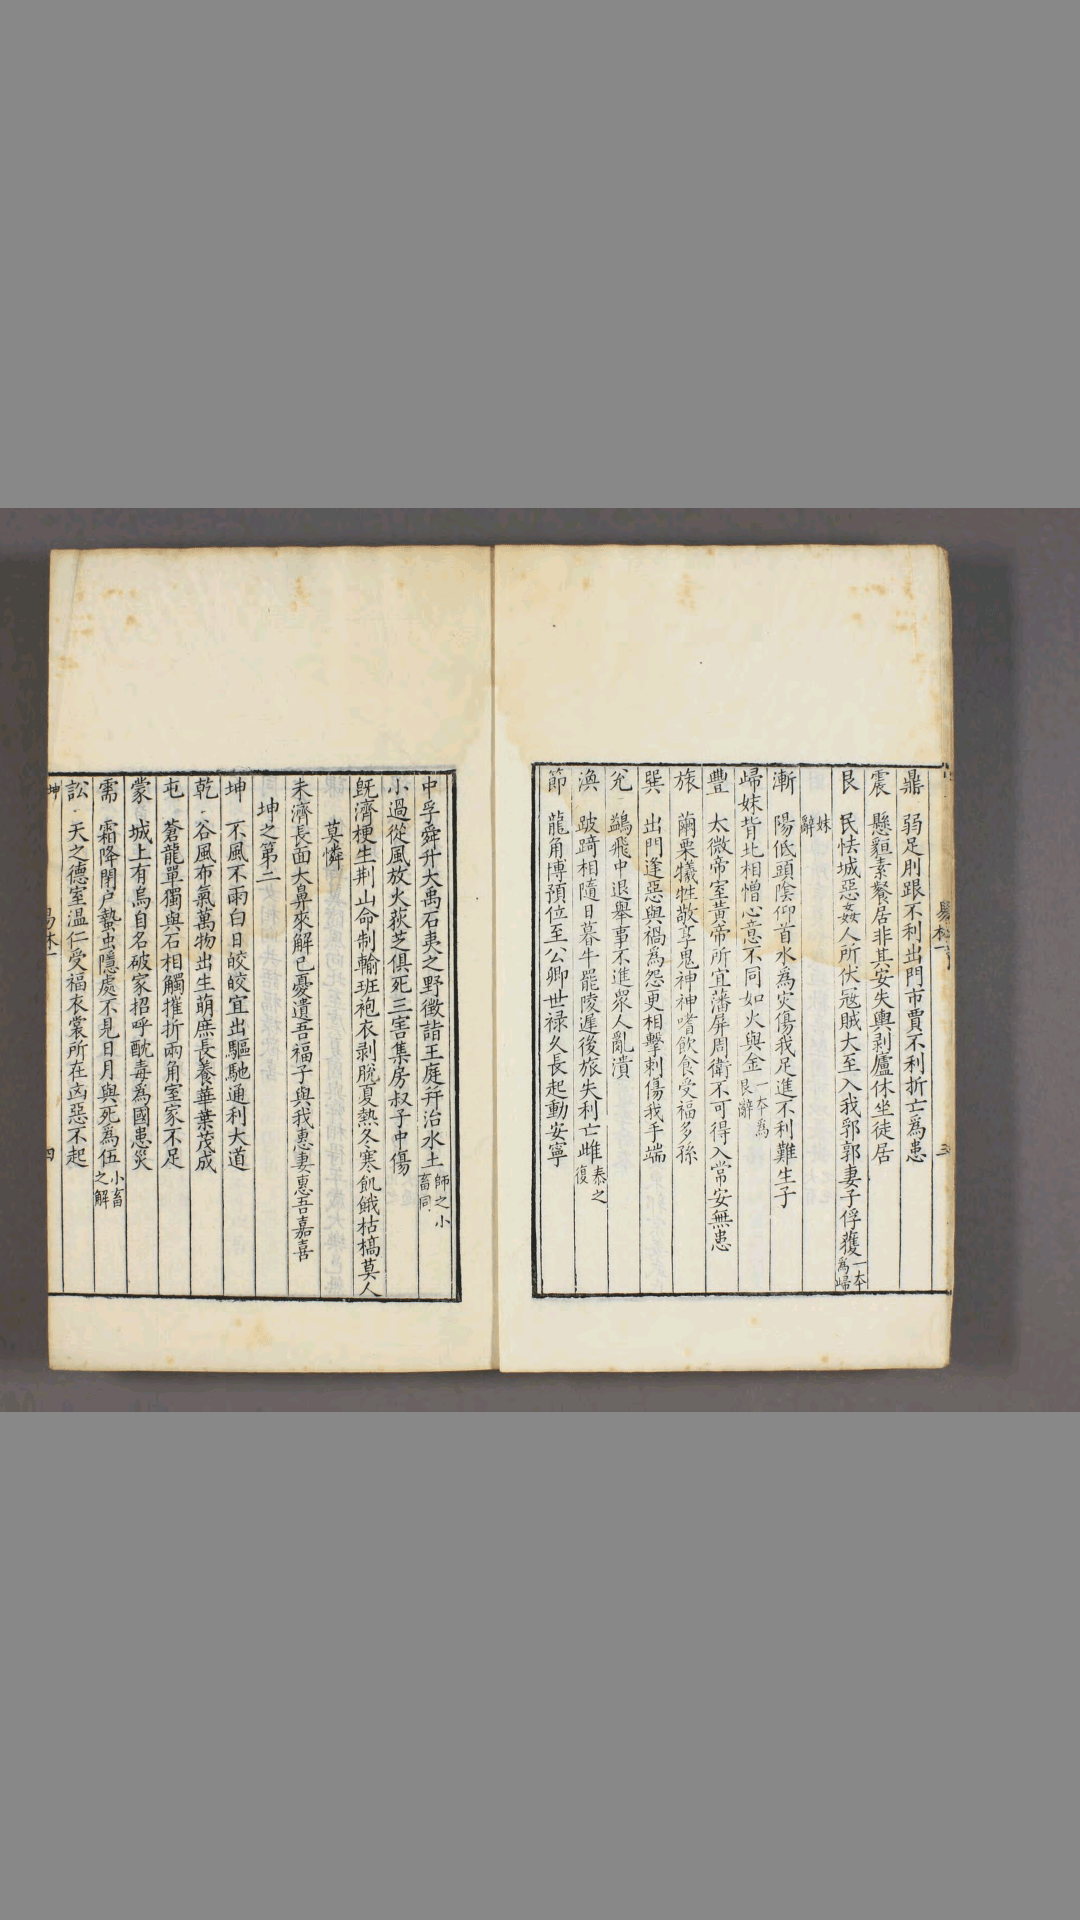 鼎　弱足刖跟不利出門市賈不利折亡為患
震　懸貆素餐居非其安失輿剥廬休坐徒居
艮　民怯城惡姦人所伏寇賊大至入我郛郭妻子俘獲一本為歸
妹辭
漸　陽低頭陰仰首水為灾傷我足進不利難生子
歸妹背北相憎心意不同如火與金一本為艮辭
豐　太微帝室黄帝所宜藩屏周衛不可得入常安無患
旅　繭栗犧牲敬享鬼神神嗜飲食受福多孫
巽　出門逢惡與禍為怨更相擊刺傷我手端
兊　鷁飛中退舉事不進衆人亂潰
渙　跛踦相隨日暮牛罷陵遲後旅失利亡雌泰之復
節　龍角博顙位至公卿世禄久長起動安寧
中孚舜升大禹石夷之野徵詣王庭并治水土師之小畜同
小過從風放火荻芝俱死三害集房叔子中傷
旣濟梗生荆山命制輸班袍衣剥脫夏熱冬寒飢餓枯槁莫人
莫憐
未濟長面大鼻來解己憂遺吾福子與我惠妻惠吾嘉喜
坤之第二
坤　不風不雨白日皎皎宜出驅馳通利大道
乾　谷風布氣萬物出生萌庶長養華葉茂成
屯　蒼龍單獨與石相觸摧折兩角室家不足
蒙　城上有烏自名破家招呼酖毒為國患災
需　霜降閉户蟄虫隱處不見日月與死為伍小畜之解
訟　天之德室温仁受福衣裳所在凶惡不起
坤
易林一
四